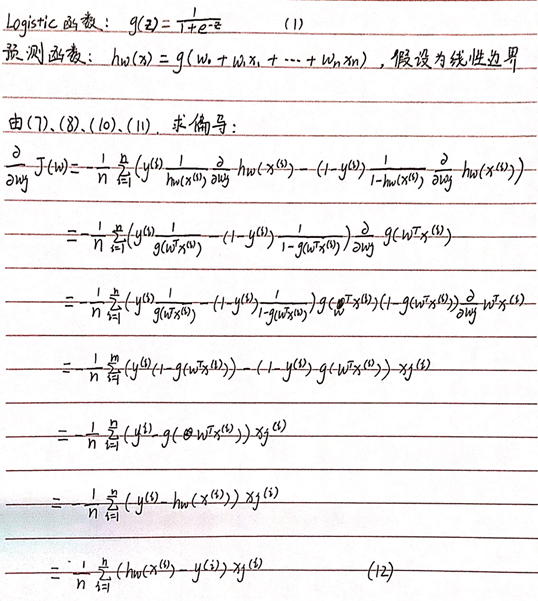 Logistic 函数: g(z) = 1/(1+e^{-z}) (1)
预测函数: hw(x) = g(w₀ + w₁x₁ + ⋯ + wₙxₙ) , 假设为线性边界
由(7)、(8)、(10)、(11), 求偏导:
∂/∂wj J(w) = -1/n Σ_{i=1}^{n} (y^{(i)} 1/hw(x^{(i)}) ∂/∂wj hw(x^{(i)}) - (1-y^{(i)}) 1/(1-hw(x^{(i)})) ∂/∂wj hw(x^{(i)}))
= -1/n Σ_{i=1}^{n} (y^{(i)} 1/g(wᵀx^{(i)}) - (1-y^{(i)}) 1/(1-g(wᵀx^{(i)}))) ∂/∂wj g(wᵀx^{(i)})
= -1/n Σ_{i=1}^{n} (y^{(i)} 1/g(wᵀx^{(i)}) - (1-y^{(i)}) 1/(1-g(wᵀx^{(i)}))) g(wᵀx^{(i)})(1-g(wᵀx^{(i)})) ∂/∂wj wᵀx^{(i)}
= -1/n Σ_{i=1}^{m} (y^{(i)}(1-g(wᵀx^{(i)})) - (1-y^{(i)}) g(wᵀx^{(i)})) xj^{(i)}
= -1/n Σ_{i=1}^{n} (y^{(i)} - g(wᵀx^{(i)})) xj^{(i)}
= -1/n Σ_{i=1}^{n} (y^{(i)} - hw(x^{(i)})) xj^{(i)}
= 1/n Σ_{i=1}^{n} (hw(x^{(i)}) - y^{(i)}) xj^{(i)} (12)